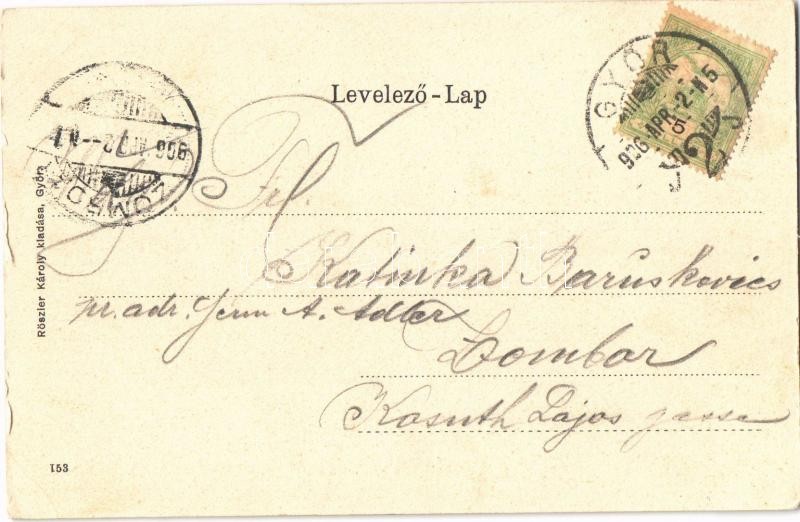 Levelező-Lap
GYŐR
906 APR. 2
5
Frl.
Katinka Baruskovics
pr. adr. Herrn A. Adler
Zombor
Kosuth Lajos gasse
ZOMBOR
906
Röszler Károly kiadása, Győr.
153